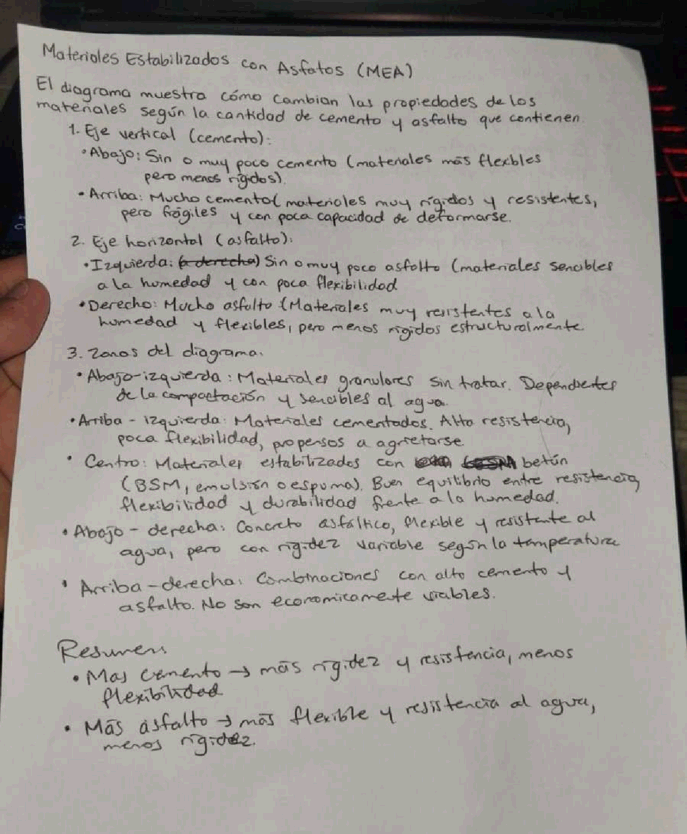 Materiales Estabilizados con Asfaltos (MEA)
El diagrama muestra cómo cambian las propiedades de los
materiales según la cantidad de cemento y asfalto que contienen
1. Eje vertical (cemento):
• Abajo: Sin o muy poco cemento (materiales más flexibles
pero menos rígidos).
• Arriba: Mucho cemento (materiales muy rígidos y resistentes,
pero frágiles y con poca capacidad de deformarse.
2. Eje horizontal (asfalto):
• Izquierda: Sin o muy poco asfalto (materiales sencibles
a la humedad y con poca flexibilidad
• Derecho: Mucho asfalto (Materiales muy resistentes a la
humedad y flexibles, pero menos rígidos estructuralmente
3. Zonas del diagrama.
• Abajo-izquierda: Materiales granulares sin tratar. Dependientes
de la compactación y sencibles al agua.
• Arriba - Izquierda: Materiales cementados. Alta resistencia,
poca flexibilidad, propensos a agrietarse
• Centro: Materiales estabilizados con betún
(BSM, emulsión o espuma). Buen equilibrio entre resistencia,
flexibilidad y durabilidad frente a la humedad.
• Abajo - derecha: Concreto asfáltico, flexible y resistente al
agua, pero con rigidez variable según la temperatura
• Arriba - derecha: Combinaciones con alto cemento y
asfalto. No son economicamente viables.
Resumen
• Mas cemento → más rigidez y resistencia, menos
flexibilidad
• Más asfalto → más flexible y resistencia al agua,
menos rigidez.